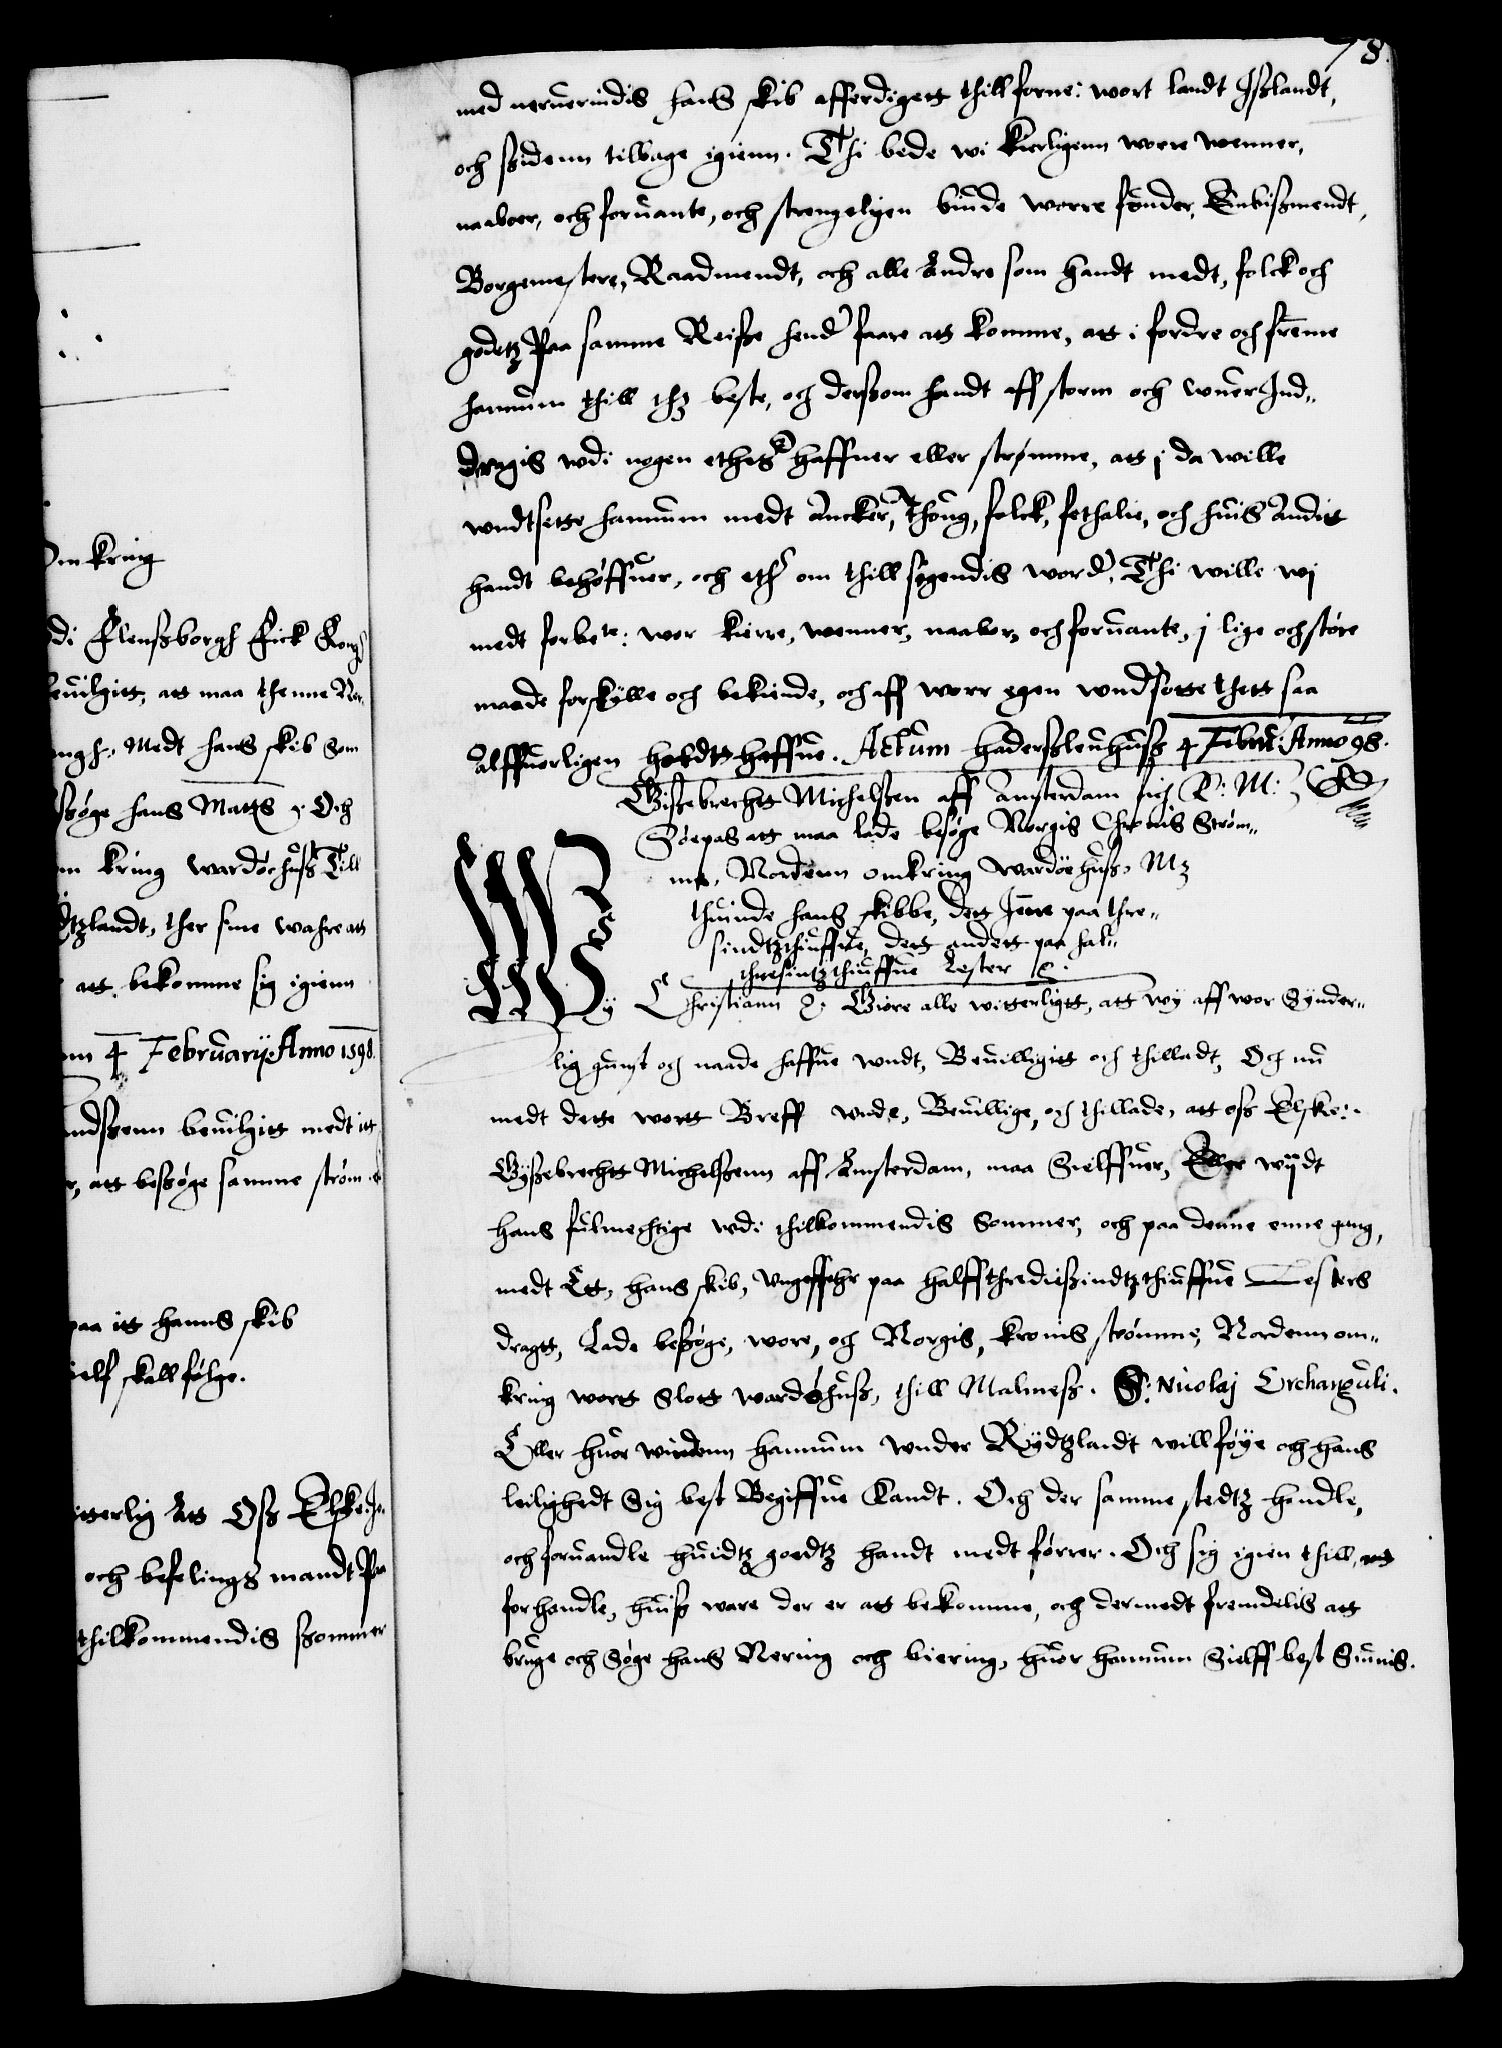 78.
med neruerindis hans skib afferdigett thill forne: wort landt Ißlandt,
och ßidenn tilbage igienn. Thi bede wi kierligenn wore wenner,
naaboer, och foruante, och strengeligen biude worre fonder, Embißmendt,
Borgemestere, Raadmendt, och alle Andre som handt medt, folck och
godtz Paa samme Reiße hend faare att komme, att i fordre och freme
hannum thill thz beste, och derßom handt aff storm och wuer Ind„
dragis wdi nogen ethers haffner eller strømme, att i da wille
wndtsette hannum medt Ancker, Thoug, folck, fethalie, och huis Andit
handt behøffuer, och ether om thill sigendis word, Thi wille wi
medt forbete: wor kierre, wenner, naabor, och foruante, i lige och støre
maade forskylle och bekiende, och aff worr egen wndsotte thett saa
Alffuerligen holdtz haffue. Actum haderßleuhuß 4 Februr: Anno 98.
Gißebrechtt Michelßen aff Amsterdam fich K: M:
Søepas att maa lade besøge Norgis Chronis Strøm„
me, Nordenn omkring Wardøehuß, Mz
thuinde hans skibbe, dett Jene paa thre„
sindtzthiuffue, dett andett paa hal„
thresintzthiuffue Lester etc.
Wy Christiann etc. Giøre alle witterligtt, att wy aff wor Synder„
lig gunst och naade haffue wndt, Beuilligitt och thilladt, Och nu
medt dette wortt Breff wnde, Beuillige, och thillade, att oß Elske:
Gyßebrechtt Michelßenn aff Amsterdam, maa Sielffuer, Eller wijdt
hans fulmechtige wdi thilkommendis Sommer, och paa denne enne gang,
medt Ett, hans skib, Vngeffehr paa halffthredießindtzthiuffue Lesters
dragtt, Lade beßøge, wore, och Norgis, kronis strømme, Nordenn om„
kring wortt Slott wardøhuß, thill Malmeß. S: Nicolaj Archanguli.
Eller huor windenn hannum wnder Rydtzlandt will føye och hans
leilighedt Sig best Begiffue kandt. Och der samme stedtz handle,
och foruandle huidtz goedtz handt medt førrer. Och sig igien thill,
forhandle, huiß ware der er att bekomme, och dermedt fremdelis att
bruge och Søge hans Nering och biering, huor hannum Sielff best Siunis.
omkring
di Flensborgh Fick Kong
beuilgitt, att maa thenne Nor„
ngh. Medt hans skib Som
søge hans Matts etc. Och
m kring wardøehuß Till
dtzlandt, ther sine wahre att
att bekomme sig igienn
nn 4 Februarij Anno 1598.
ndßenn beuilgitt medt itt
r, att beßøge samme strøm
paa itt hanns skib
ielf skall følge.
itterlig Att Oß Elske:
och befelings mandt Paa
thilkommendis ßommer